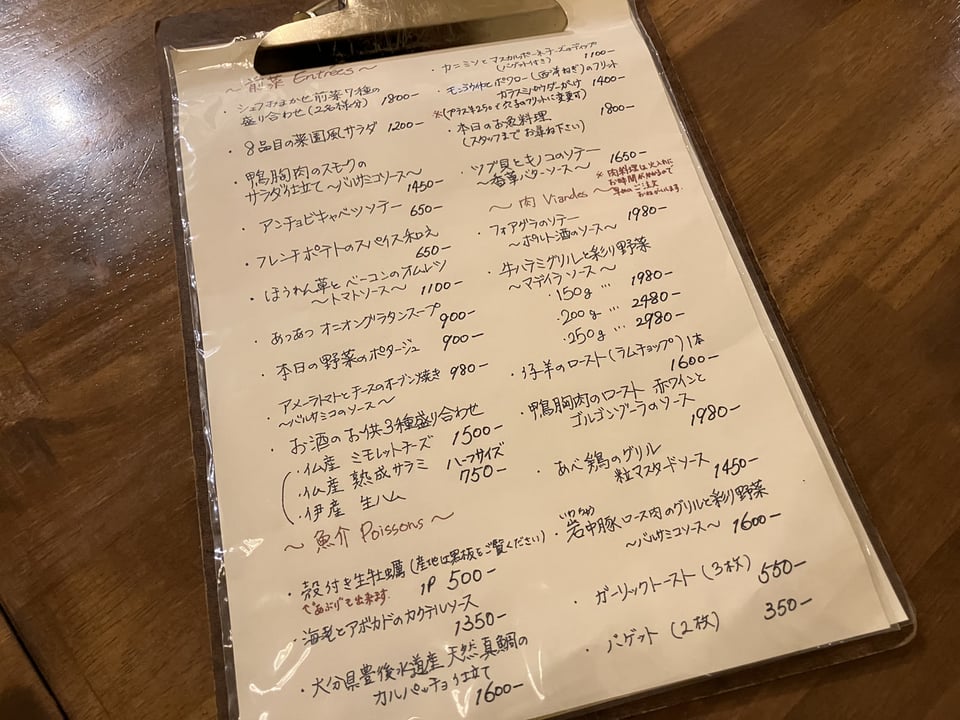 ～前菜 Entrées～
・シェフおまかせ前菜7種の
盛り合わせ(2名様分) 1800-
・8品目の菜園風サラダ 1200-
・鴨胸肉のスモークの
サラダ仕立て～バルサミコソース～
1450-
・アンチョビキャベツソテー 650-
・フレンチポテトのスパイス和え
650-
・ほうれん草とベーコンのオムレツ
～トマトソース～ 1100-
・あつあつオニオングラタンスープ
900-
・本日の野菜のポタージュ 900-
・アメーラトマトとチーズのオーブン焼き 980-
～バルサミコのソース～
・お酒のお供3種盛り合わせ
・仏産 ミモレットチーズ 1500-
・仏産 熟成サラミ ハーフサイズ
・伊産 生ハム 750-
～魚介 Poissons～
・殻付き生牡蠣(産地は黒板をご覧ください)
1P 500-
"あぶり"も出来ます.
・海老とアボカドのカクテルソース
1350-
・大分県豊後水道産 天然真鯛の
カルパッチョ仕立て
1600-
・カニミソとマスカルポーネチーズのディップ
(バゲット付き) 1100-
・モンゴウイカとポワロー(西洋ねぎ)のフリット
カラスミパウダーがけ 1400-
※(プラス¥250で穴子のフリットに変更可)
・本日のお魚料理 1800-
(スタッフまでお尋ね下さい)
・ツブ貝とキノコのソテー
～香草バターソース～ 1650-
～肉 Viandes～
※肉料理は火入れに
お時間がかかるので
早めのご注文
おねがいします.
・フォアグラのソテー 1980-
～ポルト酒のソース～
・牛ハラミグリルと彩り野菜
～マデイラソース～
・150g … 1980-
・200g … 2480-
・250g … 2980-
・仔羊のロースト(ラムチョップ)1本
1600-
・鴨胸肉のロースト 赤ワインと
ゴルゴンゾーラのソース
1980-
・あべ鶏のグリル
粒マスタードソース 1450-
いわちゅう
・岩中豚ロース肉のグリルと彩り野菜
～バルサミコソース～ 1600-
・ガーリックトースト(3枚) 550-
・バゲット(2枚) 350-